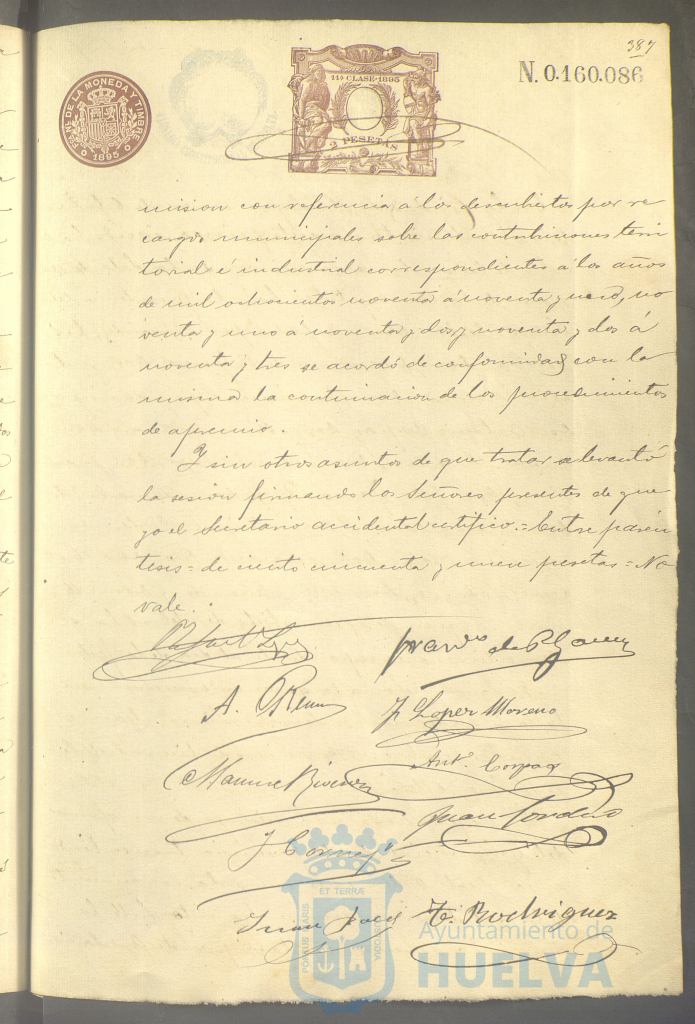 387
N. 0.160.086
FÁB. NL. DE LA MONEDA Y TIMBRE
1895
11ª CLASE-1895
2 PESETAS
mision con referencia á los descubiertos por re
cargos municipales sobre las contribuciones terri
torial é industrial correspondientes á los años
de mil ochocientos noventa á noventa y uno, no
venta y uno á noventa y dos y noventa y dos á
noventa y tres se acordó de conformidad con la
misma la continuacion de los procedimientos
de apremio.
Y sin otros asuntos de que tratar se levantó
la sesion firmando los Señores presentes de que
yo el Secretario accidental certifico.= Entre parén
tesis= de ciento cincuenta y nueve pesetas= No
vale.
Rafael
de P.
A.
J Lopez Moreno
Manuel
Antº.
Juan
J
Juan
T. Rodriguez
ET TERRÆ
PORTUS MARIS
CUSTODIA
Ayuntamiento de
HUELVA